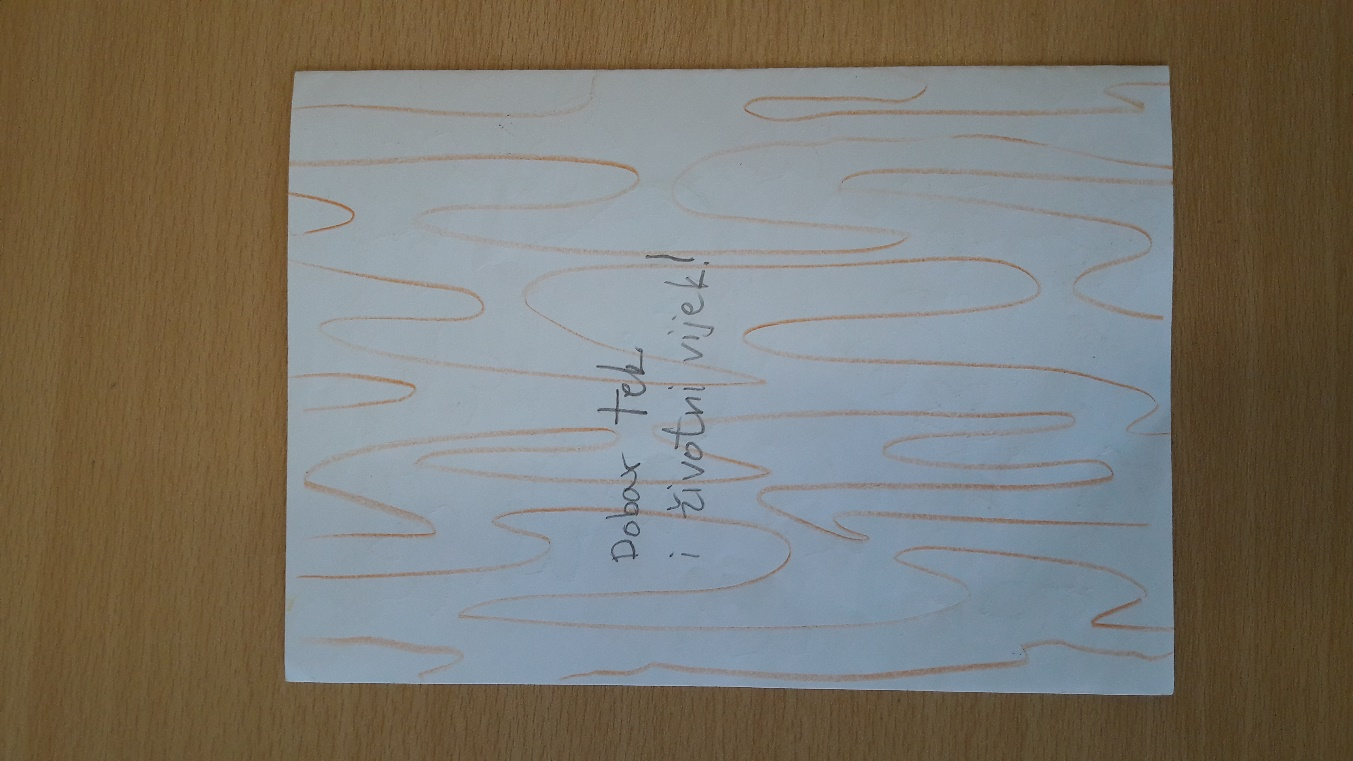 Dobar tek
i životni vijek!